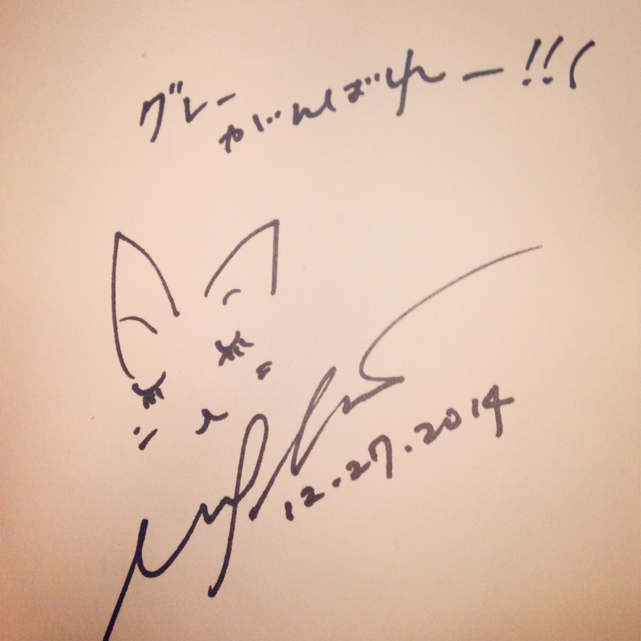 グレー
がんばれー!!
12.27.2014